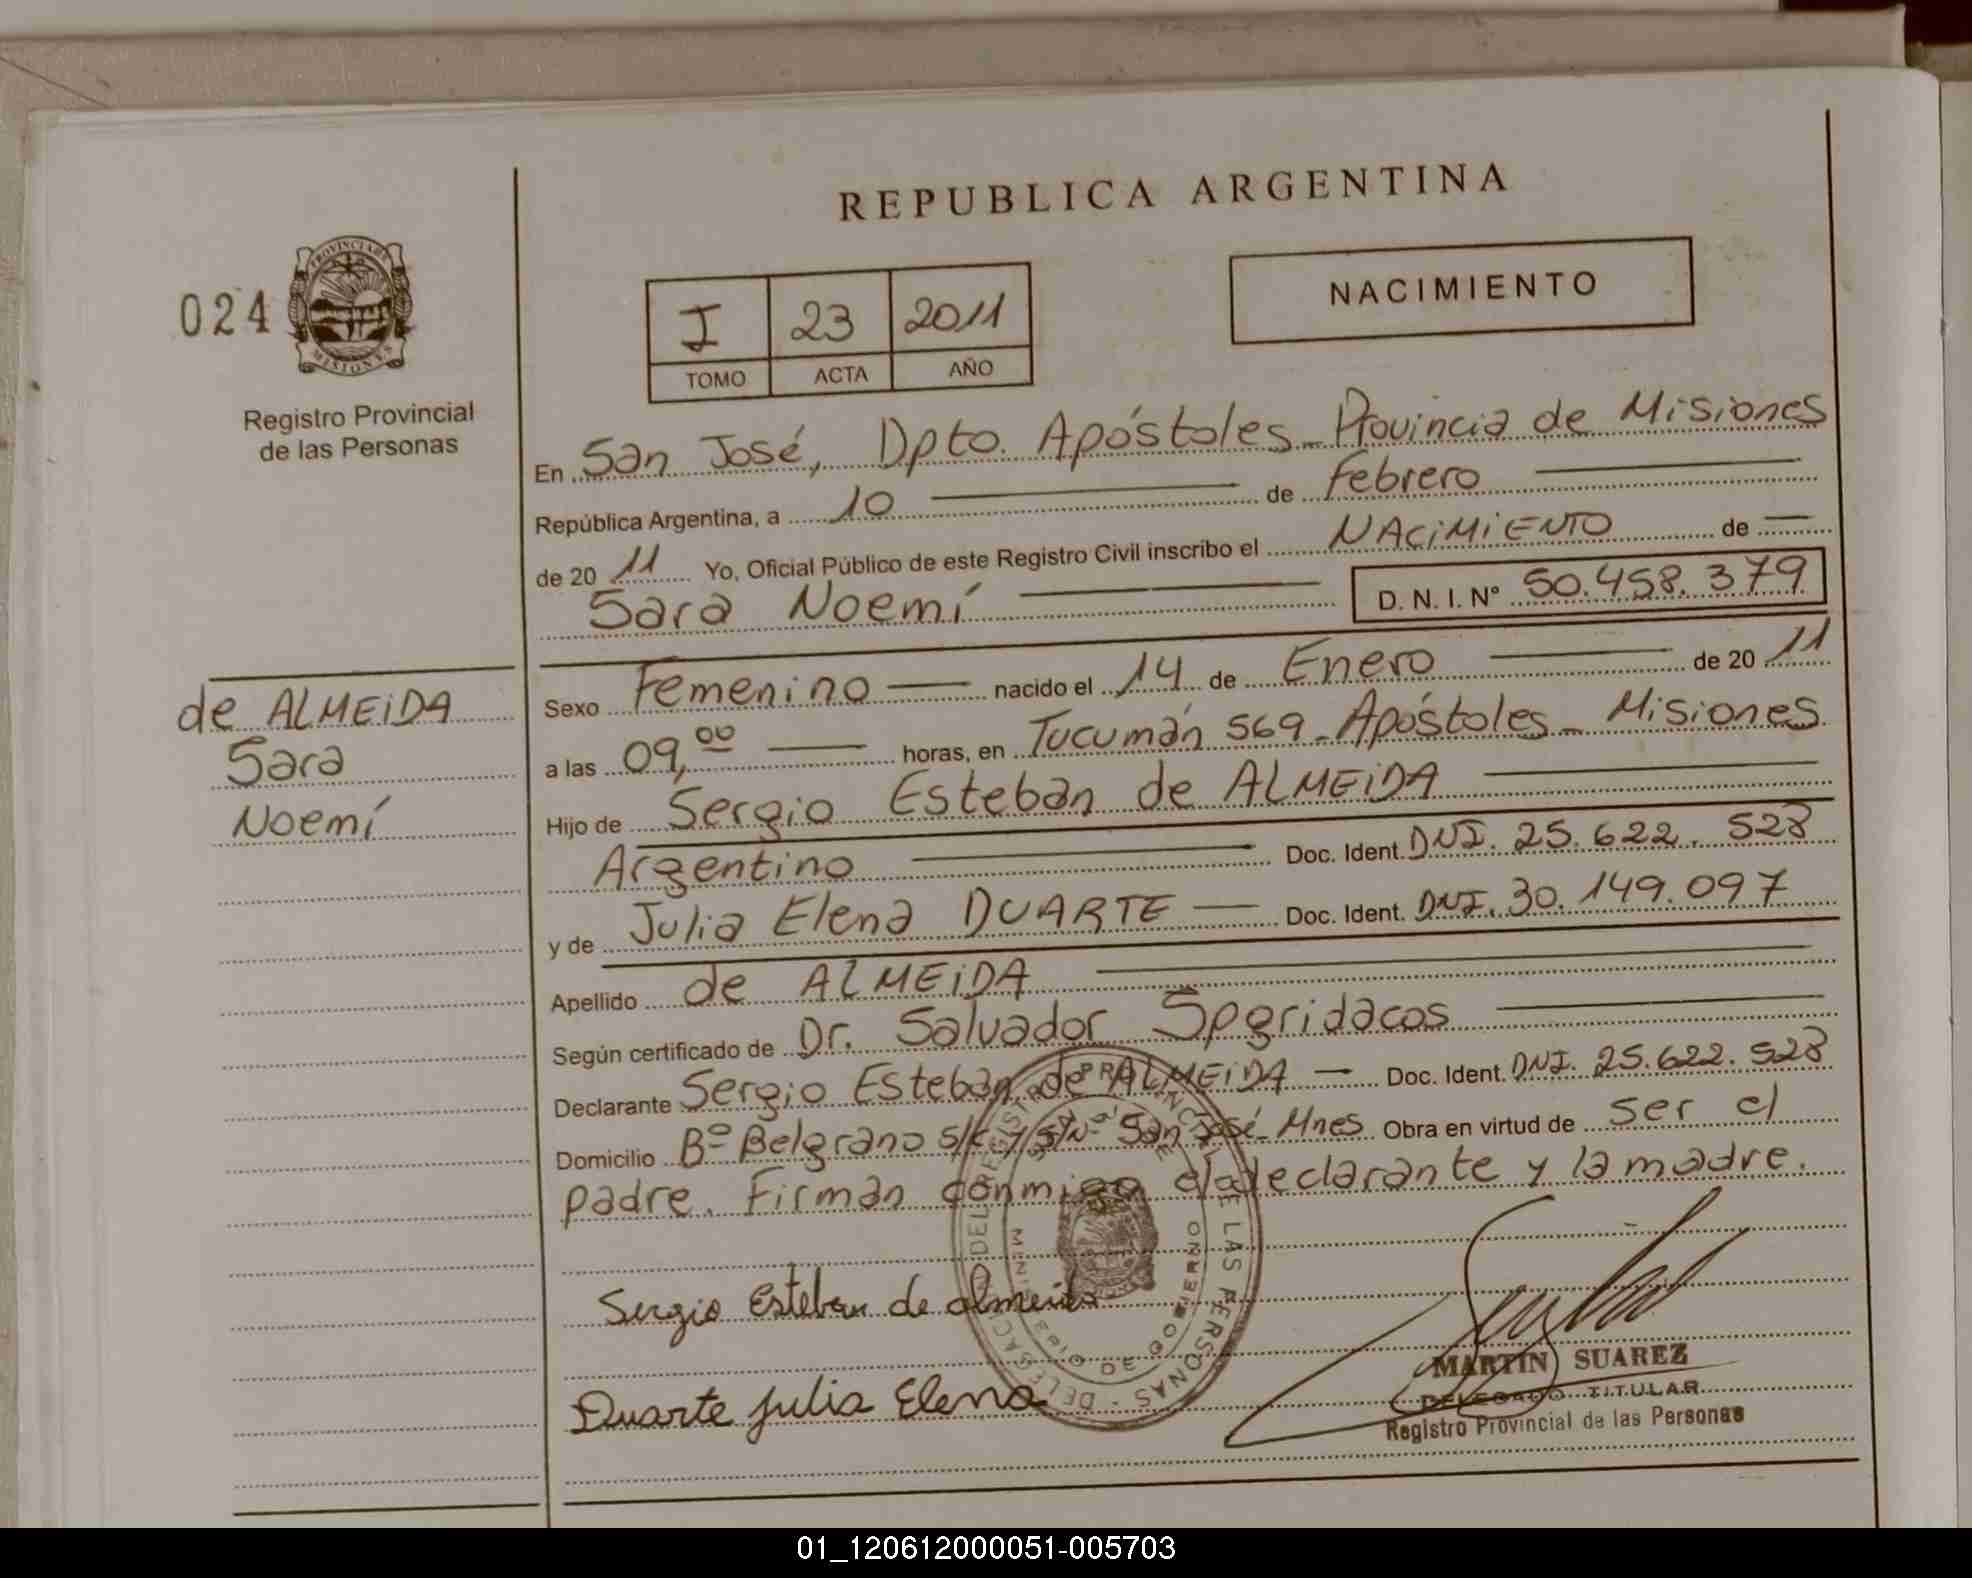 REPUBLICA ARGENTINA
024
PROVINCIA DE
MISIONES
Registro Provincial
de las Personas
I 23 2011
TOMO ACTA AÑO
NACIMIENTO
En San José, Dpto. Apóstoles - Provincia de Misiones
República Argentina, a 10 de Febrero
de 2011 Yo, Oficial Público de este Registro Civil inscribo el NACIMIENTO de —
Sara Noemí D. N. I. N° 50.458.379
de ALMEIDA
Sara
Noemí
Sexo Femenino nacido el 14 de Enero de 2011
a las 09,00 horas, en Tucumán 569 - Apóstoles - Misiones
Hijo de Sergio Esteban de ALMEIDA
Argentino Doc. Ident. DNI. 25.622.528
y de Julia Elena DUARTE — Doc. Ident. DNI. 30.149.097
Apellido de ALMEIDA
Según certificado de Dr. Salvador Speridacos
Declarante Sergio Esteban de ALMEIDA — Doc. Ident. DNI. 25.622.528
Domicilio Bº Belgrano s/c y s/Nº San José - Mnes Obra en virtud de ser el
padre. Firman conmigo el declarante y la madre.
Sergio Esteban de Almeida
Duarte Julia Elena
MARTIN SUAREZ
DELEGADO TITULAR
Registro Provincial de las Personas
01_120612000051-005703